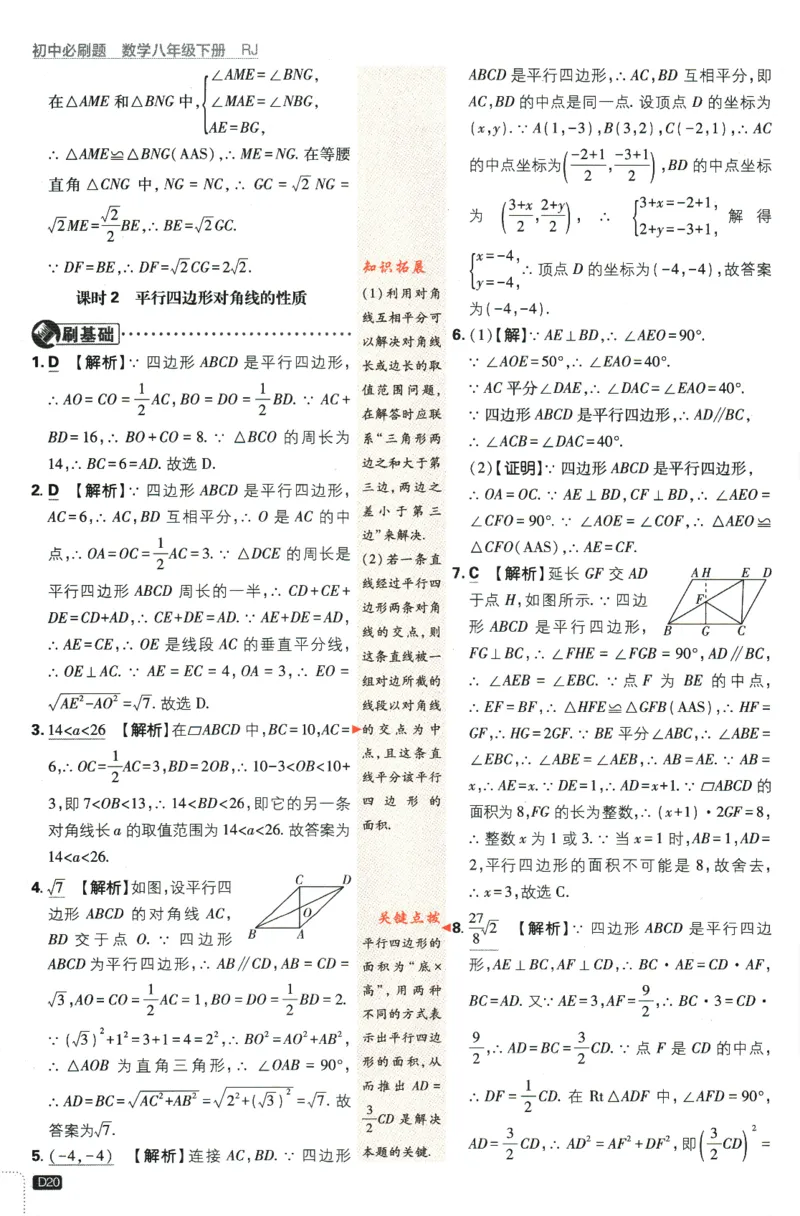 初中必刷题 数学八年级下册 RJ
在△AME 和△BNG 中,{∠AME=∠BNG,
∠MAE=∠NBG,
AE=BG,
∴ △AME≌△BNG(AAS),∴ ME=NG. 在等腰
直角 △CNG 中, NG = NC, ∴ GC = √2 NG =
√2ME=√2/2BE,∴ BE=√2GC.
∵ DF=BE,∴ DF=√2CG=2√2.
课时2 平行四边形对角线的性质
刷基础
1. D 【解析】∵ 四边形 ABCD 是平行四边形,
∴ AO = CO = 1/2AC, BO = DO = 1/2BD. ∵ AC+
BD=16,∴ BO+CO = 8. ∵ △BCO 的周长为
14,∴ BC=6=AD. 故选 D.
2. D 【解析】∵ 四边形 ABCD 是平行四边形,
AC=6,∴ AC,BD 互相平分,∴ O 是 AC 的中
点,∴ OA=OC=1/2AC=3. ∵ △DCE 的周长是
平行四边形 ABCD 周长的一半,∴ CD+CE+
DE=CD+AD,∴ CE+DE=AD. ∵ AE+DE=AD,
∴ AE=CE,∴ OE 是线段 AC 的垂直平分线,
∴ OE⊥AC. ∵ AE = EC = 4, OA = 3, ∴ EO =
√(AE²-AO²)=√7. 故选 D.
3. 14<a<26 【解析】在▱ABCD 中,BC=10,AC=
6,∴ OC=1/2AC=3,BD=2OB,∴ 10-3<OB<10+
3,即 7<OB<13,∴ 14<BD<26,即它的另一条
对角线长 a 的取值范围为 14<a<26. 故答案为
14<a<26.
4. √7 【解析】如图,设平行四
边形 ABCD 的对角线 AC,
BD 交于点 O. ∵ 四边形
C D
O
B A
ABCD 为平行四边形,∴ AB∥CD,AB = CD =
√3,AO=CO=1/2AC=1,BO=DO=1/2BD=2.
∵ (√3)²+1²=3+1=4=2²,∴ BO²=AO²+AB²,
∴ △AOB 为直角三角形,∴ ∠OAB = 90°,
∴ AD=BC=√(AC²+AB²)=√(2²+(√3)²)=√7. 故
答案为√7.
5. (-4,-4) 【解析】连接 AC,BD. ∵ 四边形
D20
知识拓展
(1)利用对角
线互相平分可
以解决对角线
长或边长的取
值范围问题,
在解答时应联
系“三角形两
边之和大于第
三边,两边之
差小于第三
边”来解决.
(2)若一条直
线经过平行四
边形两条对角
线的交点,则
这条直线被一
组对边所截的
线段以对角线
的交点为中
点,且这条直
线平分该平行
四边形的
面积.
关键点拨
平行四边形的
面积为“底×
高”,用两种
不同的方式表
示出平行四边
形的面积,从
而推出 AD =
3/2CD 是解决
本题的关键.
ABCD 是平行四边形,∴ AC,BD 互相平分,即
AC,BD 的中点是同一点. 设顶点 D 的坐标为
(x,y). ∵ A(1,-3),B(3,2),C(-2,1),∴ AC
的中点坐标为((-2+1)/2,(-3+1)/2),BD 的中点坐标
为 ((3+x)/2,(2+y)/2), ∴ {3+x=-2+1,
2+y=-3+1, 解得
{x=-4,
y=-4, ∴ 顶点 D 的坐标为(-4,-4),故答案
为(-4,-4).
6. (1)【解】∵ AE⊥BD,∴ ∠AEO=90°.
∵ ∠AOE=50°,∴ ∠EAO=40°.
∵ AC 平分∠DAE,∴ ∠DAC=∠EAO=40°.
∵ 四边形 ABCD 是平行四边形,∴ AD∥BC,
∴ ∠ACB=∠DAC=40°.
(2)【证明】∵ 四边形 ABCD 是平行四边形,
∴ OA=OC. ∵ AE⊥BD,CF⊥BD,∴ ∠AEO=
∠CFO=90°. ∵ ∠AOE=∠COF,∴ △AEO≌
△CFO(AAS),∴ AE=CF.
7. C 【解析】延长 GF 交 AD
于点 H,如图所示. ∵ 四边
形 ABCD 是平行四边形,
A H E D
F
B G C
FG⊥BC,∴ ∠FHE = ∠FGB = 90°,AD∥BC,
∴ ∠AEB = ∠EBC. ∵ 点 F 为 BE 的中点,
∴ EF=BF,∴ △HFE≌△GFB(AAS),∴ HF=
GF,∴ HG=2GF. ∵ BE 平分∠ABC,∴ ∠ABE=
∠EBC,∴ ∠ABE=∠AEB,∴ AB=AE. ∵ AB=
x,∴ AE=x. ∵ DE=1,∴ AD=x+1. ∵ ▱ABCD 的
面积为 8,FG 的长为整数,∴ (x+1)·2GF=8,
∴ 整数 x 为 1 或 3. ∵ 当 x=1 时,AB=1,AD=
2,平行四边形的面积不可能是 8,故舍去,
∴ x=3,故选 C.
8. 27/8√2 【解析】∵ 四边形 ABCD 是平行四边
形,AE⊥BC,AF⊥CD,∴ BC·AE=CD·AF,
BC=AD. 又∵ AE=3,AF=9/2,∴ BC·3=CD·
9/2,∴ AD=BC=3/2CD. ∵ 点 F 是 CD 的中点,
∴ DF=1/2CD. 在 Rt△ADF 中,∠AFD=90°,
AD=3/2CD,∴ AD²=AF²+DF²,即(3/2CD)²=